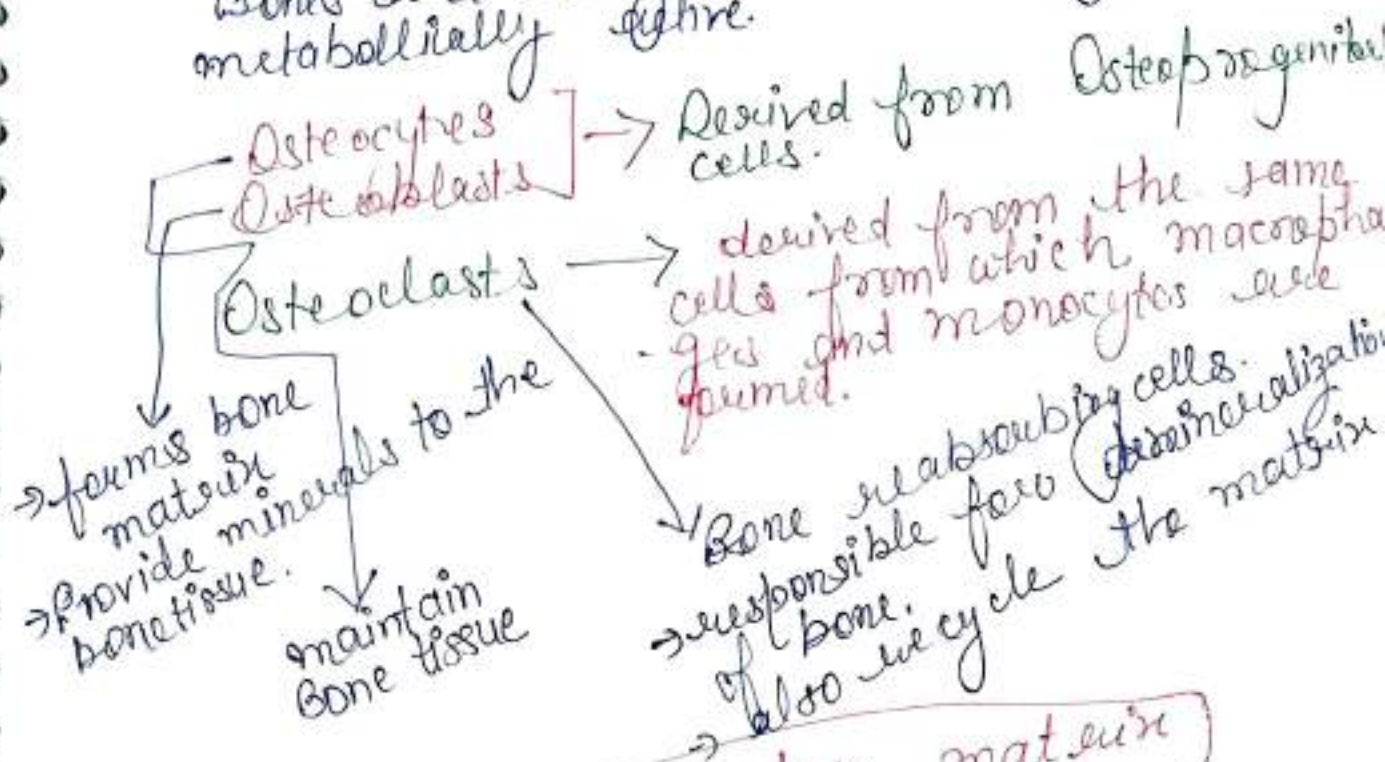 metabollically active.
Osteocytes
Osteoblasts
Derived from Osteoprogenitor
cells.
Osteoclasts
derived from the same
cells from which macropha
-ges and monocytes are
formed.
→ forms bone
matrix
→ Provide minerals to the
bone tissue.
maintain
Bone tissue
Bone reabsorbing cells.
→ responsible for demineralization
of bone.
→ also recycle the matrix
matrix